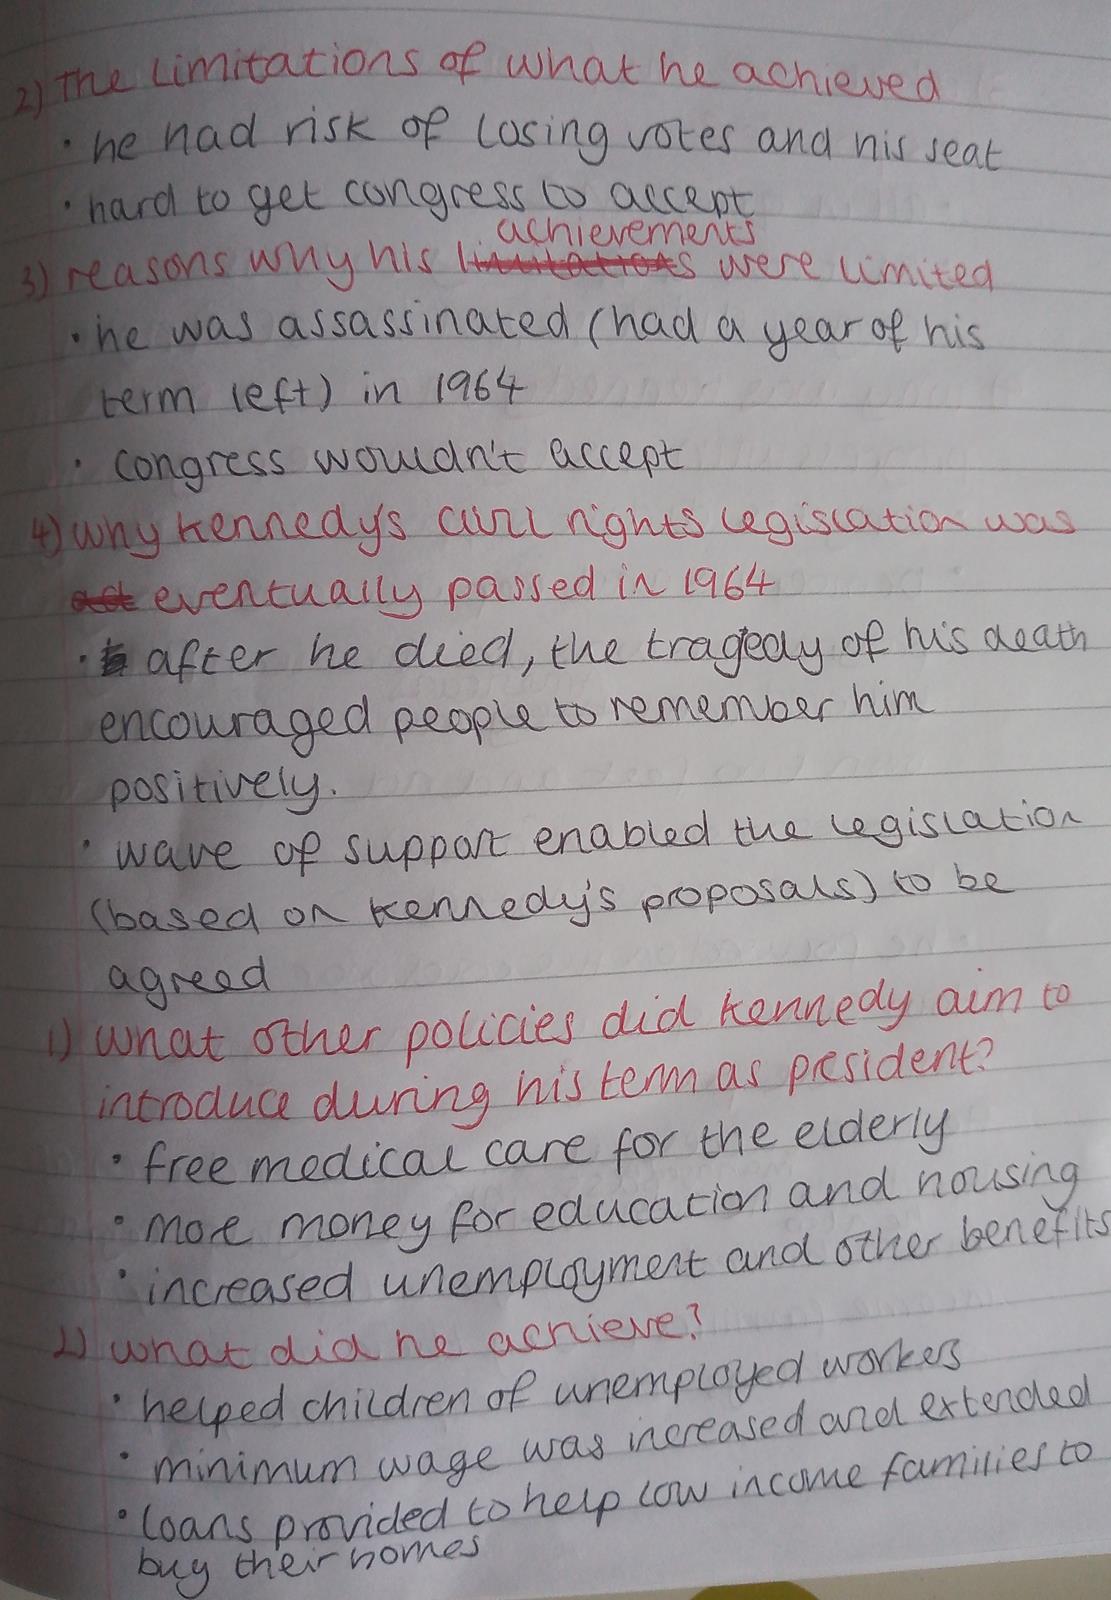 2) The limitations of what he achieved
· he had risk of losing votes and his seat
· hard to get congress to accept
achievements
3) reasons why his limitations were limited
· he was assassinated (had a year of his
term left) in 1964
· congress wouldn't accept
4) why Kennedy's civil rights legislation was
eventually passed in 1964
· after he died, the tragedy of his death
encouraged people to remember him
positively.
· wave of support enabled the legislation
(based on Kennedy's proposals) to be
agreed
1) What other policies did Kennedy aim to
introduce during his term as president?
· free medical care for the elderly
· more money for education and housing
· increased unemployment and other benefits
2) what did he achieve?
· helped children of unemployed workers
· minimum wage was increased and extended
· loans provided to help low income families to
buy their homes